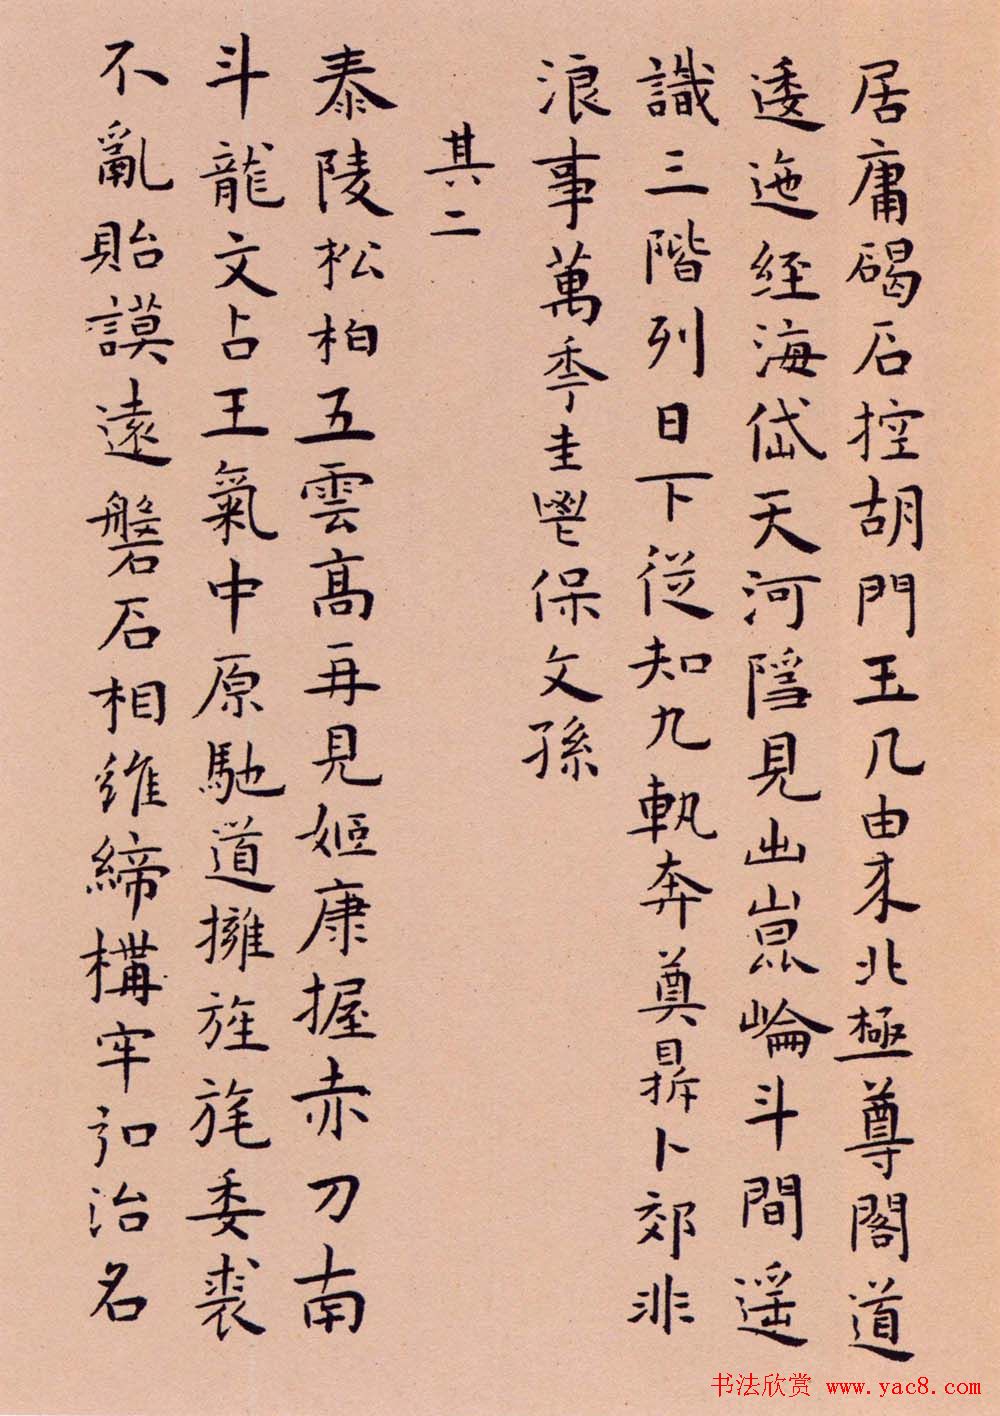 居庸碣石控胡門玉几由来北極尊閣道
逶迤經海岱天河隱見出崑崙斗間遥
識三階列日下從知九軌奔奠鼎卜郊非
浪事萬季圭鬯保文孫
其二
泰陵松柏五雲高再見姬康握赤刀南
斗龍文占王氣中原馳道擁旌旄委裘
不亂貽謨遠磐石相維締構牢弘治名
书法欣赏 www.yac8.com